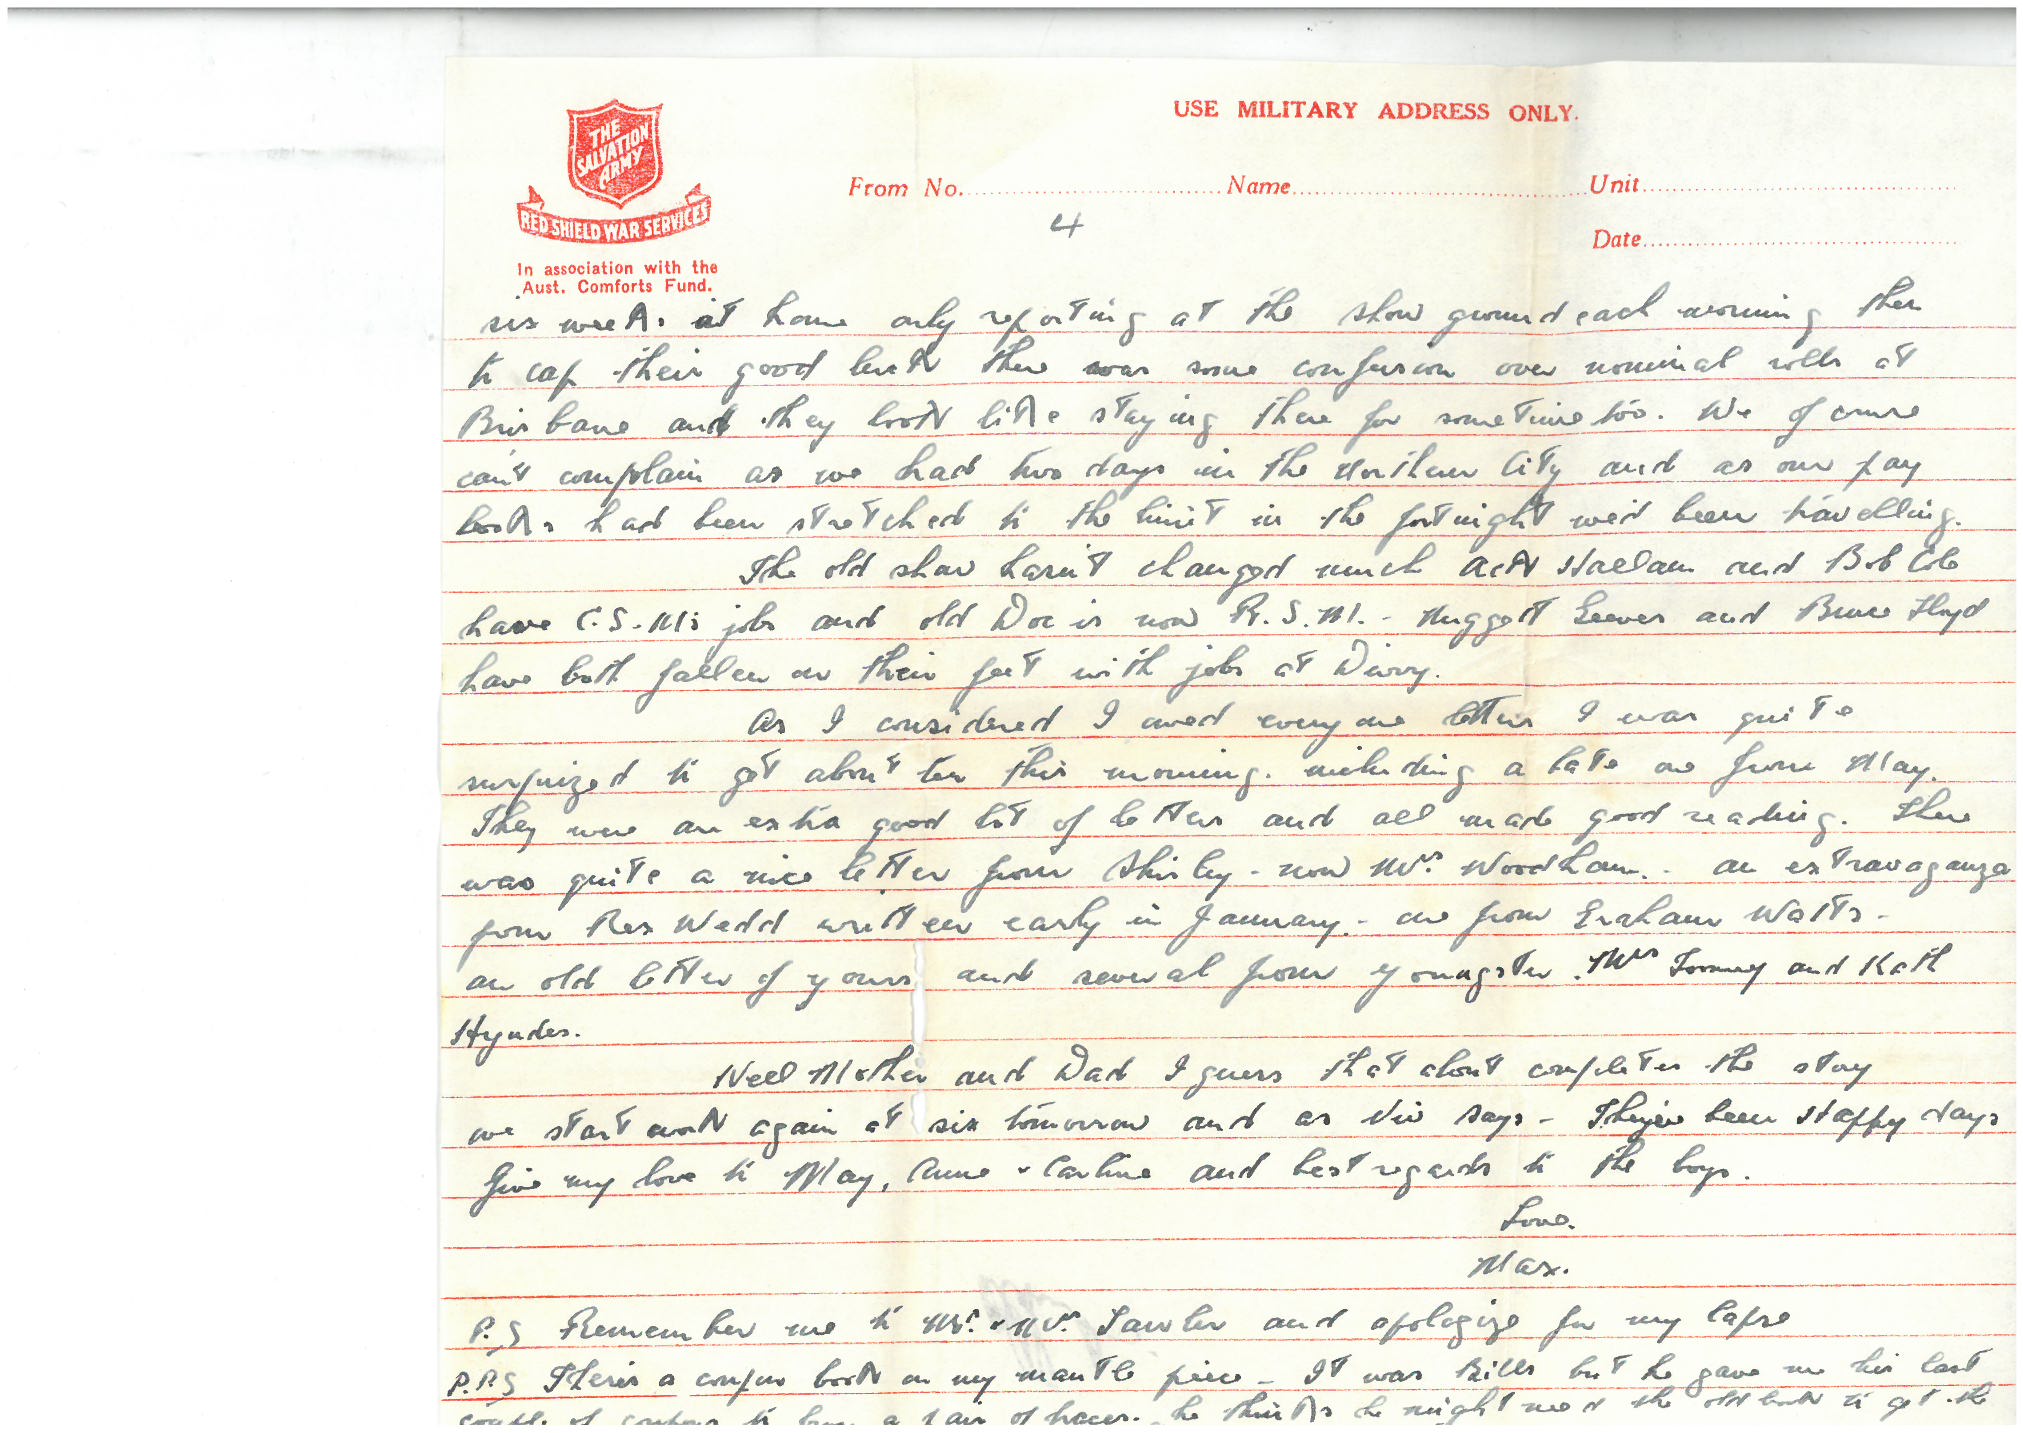 THE
SALVATION
ARMY
RED SHIELD WAR SERVICES
In association with the
Aust. Comforts Fund.
USE MILITARY ADDRESS ONLY.
From No. Name Unit
Date
4
six weeks at home only reporting at the show ground each morning then
to cap their good luck there was some confusion over nominal rolls at
Brisbane and they look like staying there for sometime too. We of course
can't complain as we had two days in the Northern City and as our pay
books had been stretched to the limit in the fortnight we'd been travelling.
The old show hasn't changed much Ack Hallam and Bob Cole
have C.S.M's jobs and old Doc is now R.S.M. - Nuggett Leever and Bruce Floyd
have both fallen on their feet with jobs at Divvy.
As I considered I owed everyone letters I was quite
surprized to get about ten this morning. including a late one from May.
They were an extra good lot of letters and all made good reading. There
was quite a nice letter from Shirley - now Mrs. Woodham. - an extravaganza
from Rex Wedd written early in January. - one from Graham Watts -
an old letter of yours and several from youngster. Mrs Toomey and Kath
Hyndes.
Well Mother and Dad I guess that about completes the story
we start work again at six tomorrow and as Viv says - They've been Happy days
Give my love to May, Anne & Carline and best regards to the boys.
Love.
Max.
P.S Remember me to Mr. & Mrs. Lawler and apologize for my lapse
P.P.S There's a coupon book on my mantle piece - It was Bills but he gave me his last
couple of coupons to buy a pair of braces. he thinks he might need the old book to get the